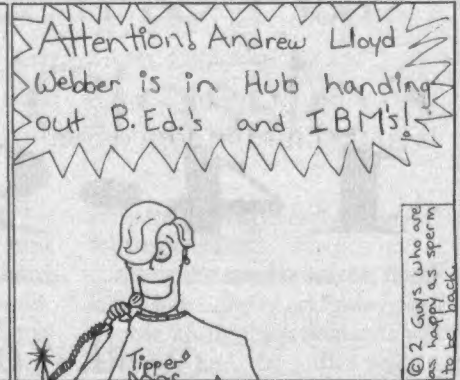 Attention! Andrew Lloyd
Webber is in Hub handing
out B.Ed.'s and IBM's!
Tipper
© 2 Guys who are
as happy as sperm
to be back.